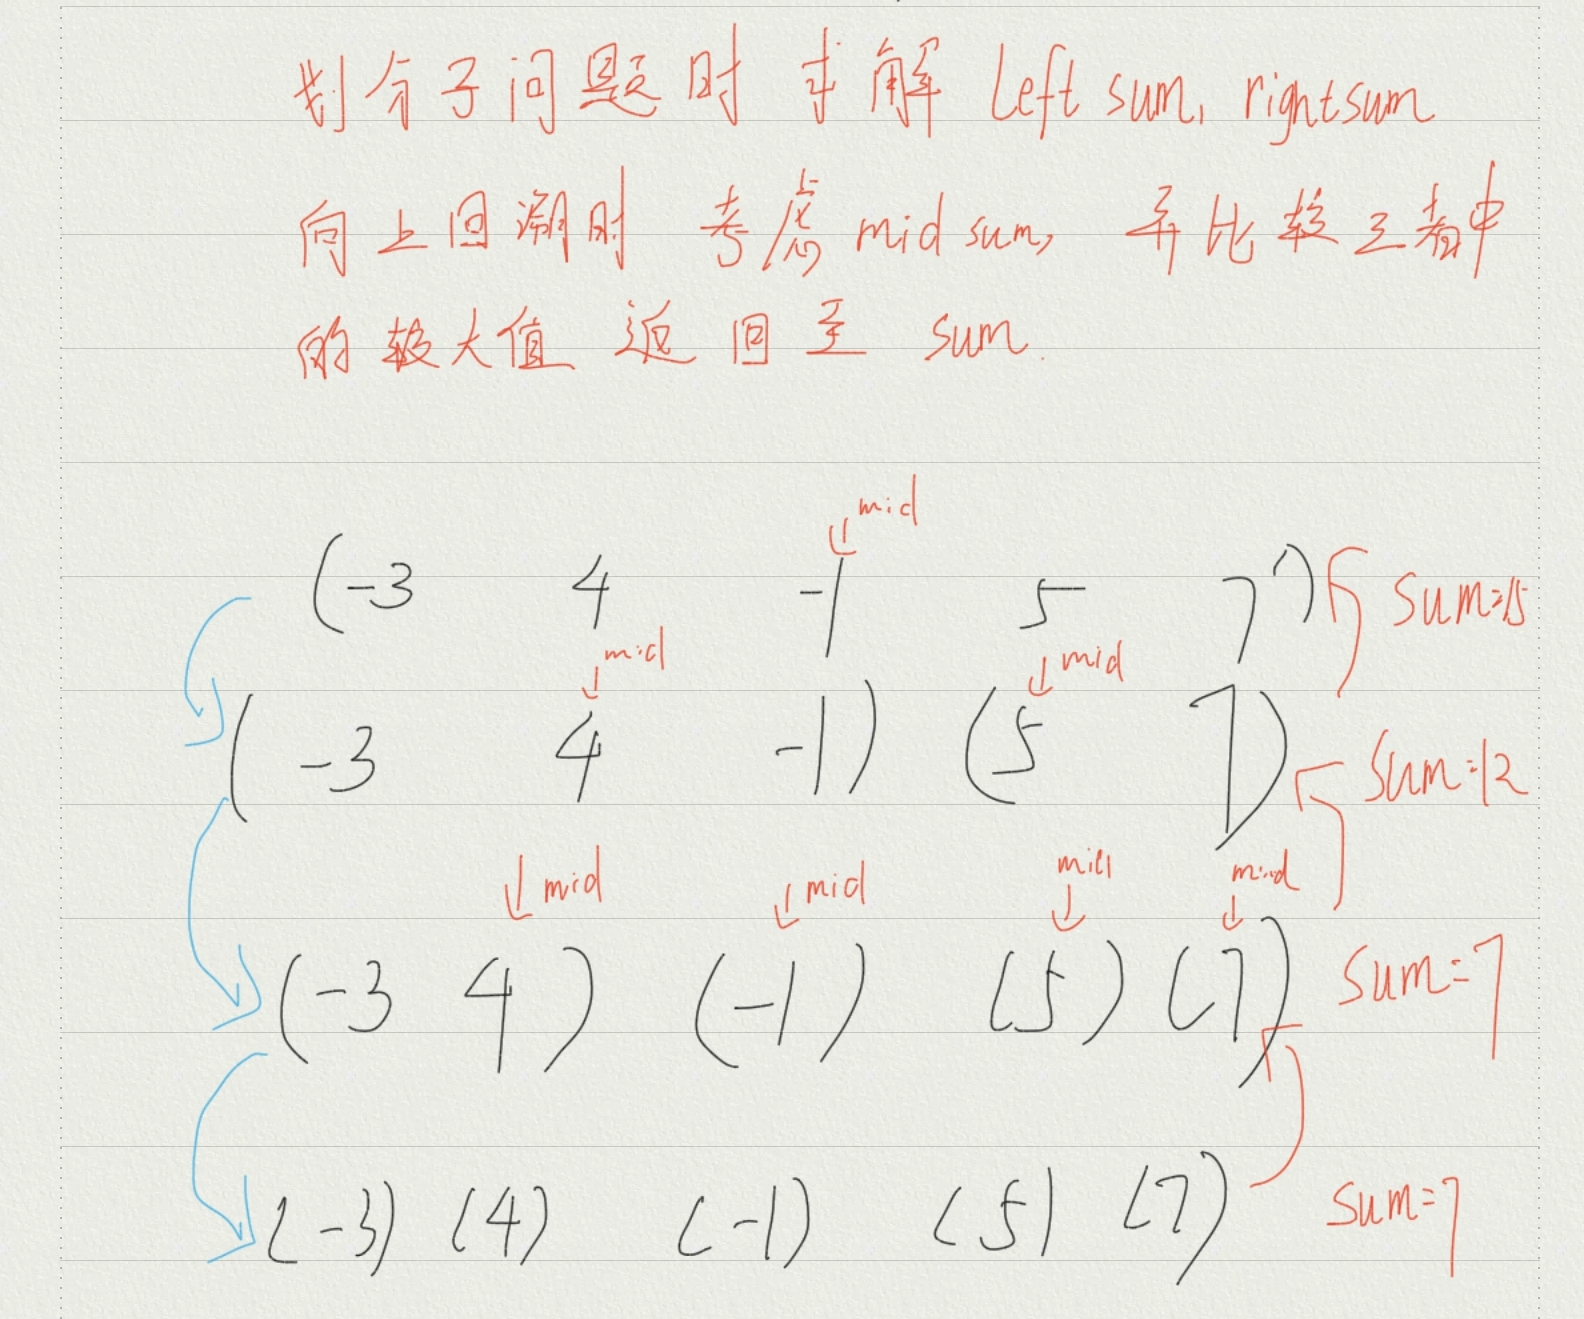 划分子问题时 求解 Left sum, rightsum
向上回溯时 考虑 mid sum, 并比较三者中
的较大值 返回至 sum.
mid
(-3 4 -1 5 7) sum=15
mid mid
(-3 4 -1) (5 7) sum=12
mid mid mid mid
(-3 4) (-1) (5) (7) sum=7
(-3) (4) (-1) (5) (7) sum=7